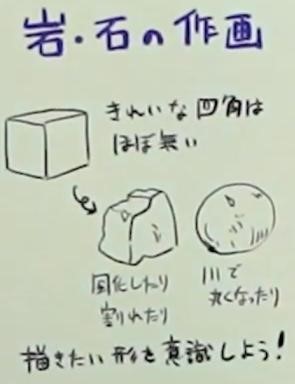 岩・石の作画
きれいな四角は
ほぼ無い
風化したり
割れたり
川で
丸くなったり
描きたい形を意識しよう!